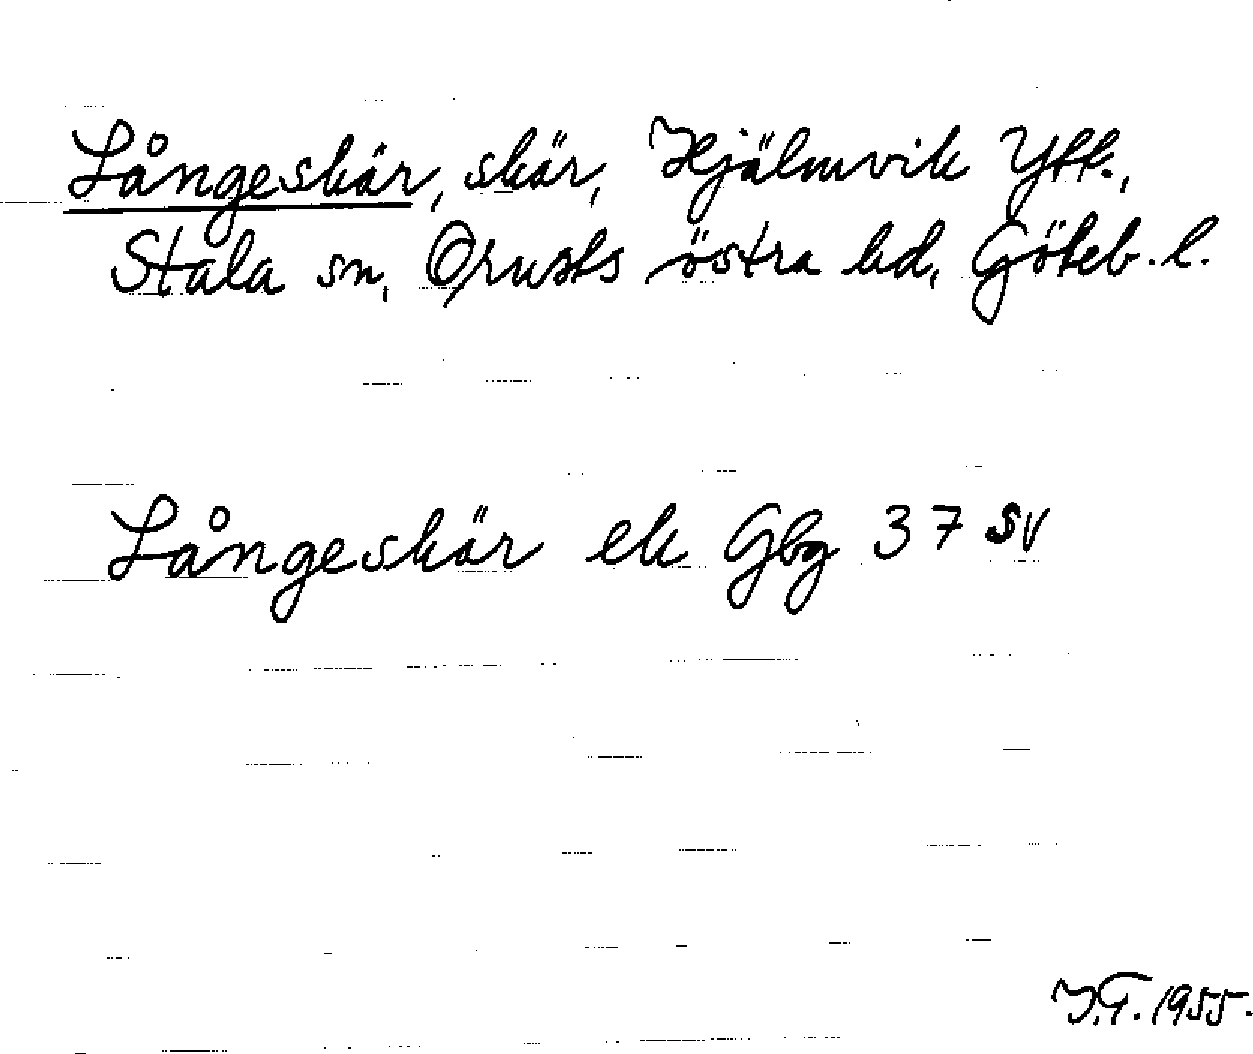 Långeskär, skär, Hjälmvik Ytt.,
Stala sn, Orusts östra hd, Göteb. l.
Långeskär ek Gbg 37 SV
I.T. 1955.